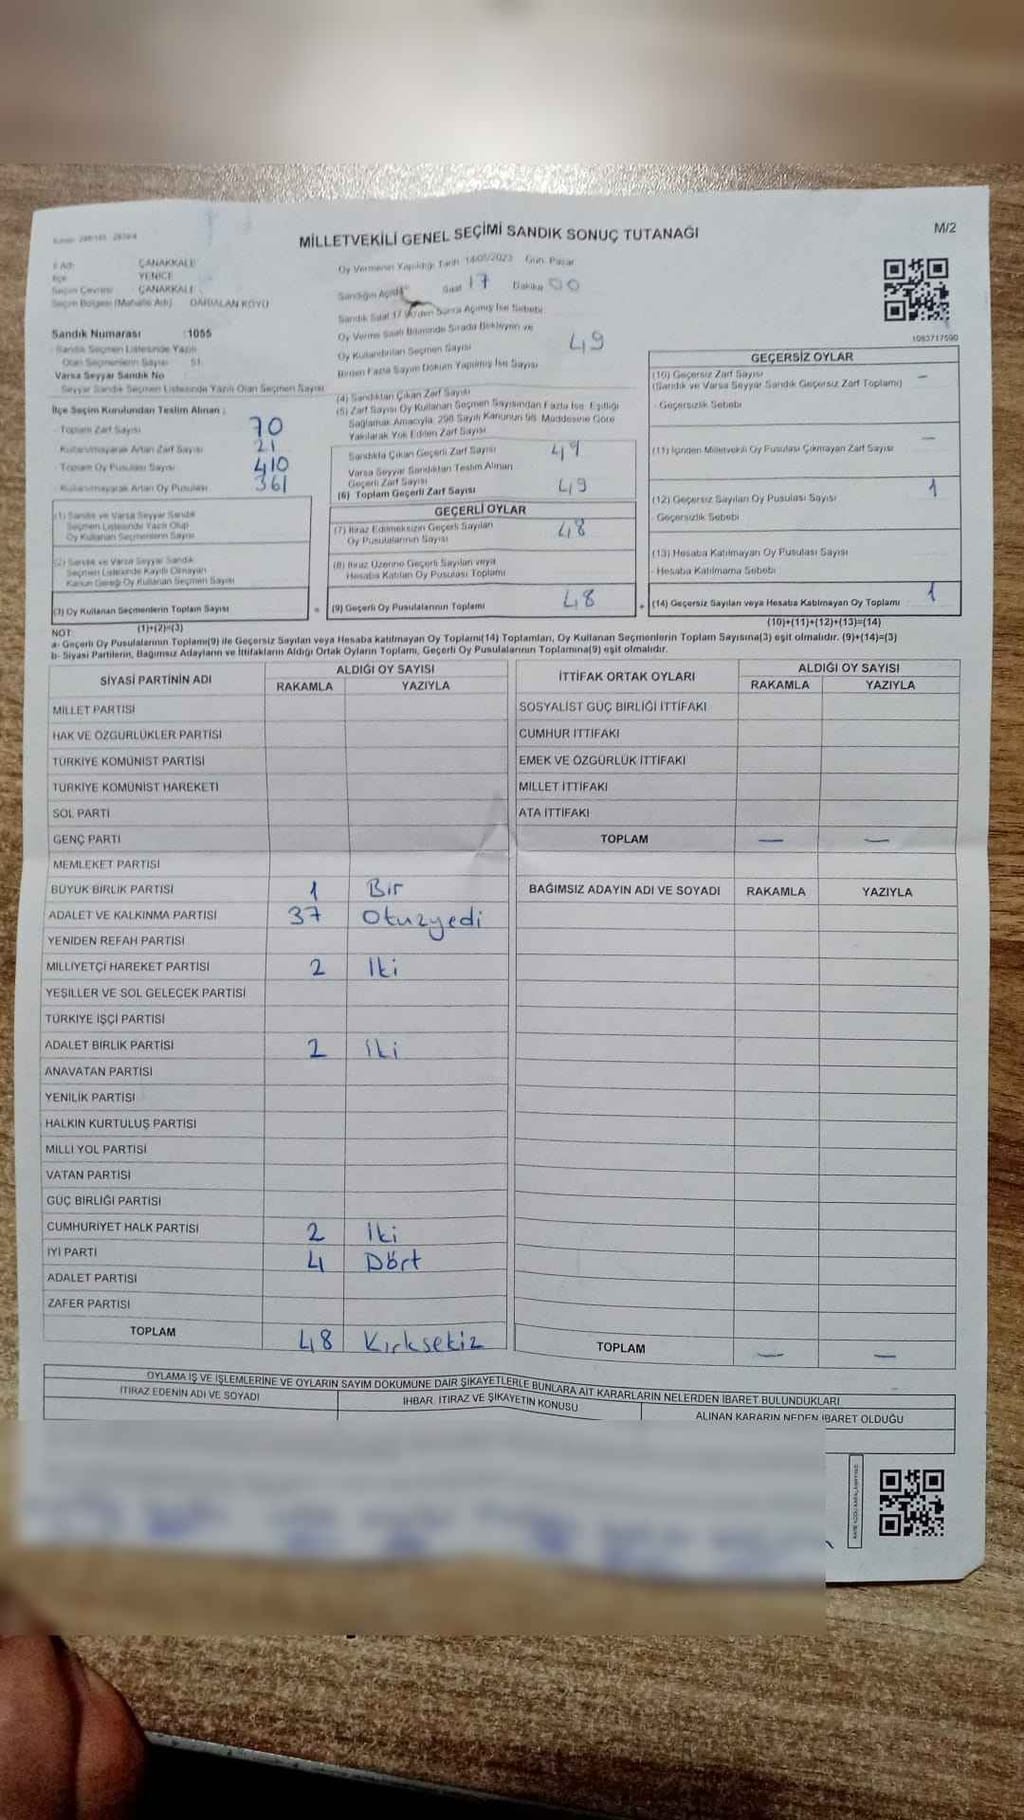 MİLLETVEKİLİ GENEL SEÇİMİ SANDIK SONUÇ TUTANAĞI
M/2
ÇANAKKALE
İlçe YENİCE
Seçim Çevresi ÇANAKKALE
Seçim Bölgesi (Mahalle Adı) DARIALAN KÖYÜ
Sandık Numarası :1055
Sandık Seçmen Listesinde Yazılı
Olan Seçmenlerin Sayısı 51
Varsa Seyyar Sandık No
Seyyar Sandık Seçmen Listesinde Yazılı Olan Seçmen Sayısı
İlçe Seçim Kurulundan Teslim Alınan ;
- Toplam Zarf Sayısı 70
- Kullanılmayarak Artan Zarf Sayısı 21
- Toplam Oy Pusulası Sayısı 410
- Kullanılmayarak Artan Oy Pusulası 361
(1) Sandık ve Varsa Seyyar Sandık
Seçmen Listesinde Yazılı Olup
Oy Kullanan Seçmenlerin Sayısı
(2) Sandık ve Varsa Seyyar Sandık
Seçmen Listesinde Kayıtlı Olmayan
Kanun Gereği Oy Kullanan Seçmen Sayısı
(3) Oy Kullanan Seçmenlerin Toplam Sayısı
(1)+(2)=(3)
Oy Vermenin Yapıldığı Tarih 14/05/2023 Gün Pazar
Sandığın Açıldığı Saat 17 Dakika 00
Sandık Saat 17.00'den Sonra Açılmış İse Sebebi
Oy Verme Saati Bitiminde Sırada Bekleyen ve
Oy Kullandırılan Seçmen Sayısı 49
Birden Fazla Sayım Döküm Yapılmış İse Sayısı
(4) Sandıktan Çıkan Zarf Sayısı
(5) Zarf Sayısı Oy Kullanan Seçmen Sayısından Fazla İse, Eşitliği
Sağlamak Amacıyla, 298 Sayılı Kanunun 98. Maddesine Göre
Yakılarak Yok Edilen Zarf Sayısı
Sandıkta Çıkan Geçerli Zarf Sayısı 49
Varsa Seyyar Sandıktan Teslim Alınan
Geçerli Zarf Sayısı
(6) Toplam Geçerli Zarf Sayısı 49
GEÇERLİ OYLAR
(7) İtiraz Edilmeksizin Geçerli Sayılan
Oy Pusulalarının Sayısı 48
(8) İtiraz Üzerine Geçerli Sayılan veya
Hesaba Katılan Oy Pusulası Toplamı
= (9) Geçerli Oy Pusulalarının Toplamı 48
1083717590
GEÇERSİZ OYLAR
(10) Geçersiz Zarf Sayısı —
(Sandık ve Varsa Seyyar Sandık Geçersiz Zarf Toplamı)
- Geçersizlik Sebebi
(11) İçinden Milletvekili Oy Pusulası Çıkmayan Zarf Sayısı —
(12) Geçersiz Sayılan Oy Pusulası Sayısı 1
- Geçersizlik Sebebi
(13) Hesaba Katılmayan Oy Pusulası Sayısı
- Hesaba Katılmama Sebebi
+ (14) Geçersiz Sayılan veya Hesaba Katılmayan Oy Toplamı 1
(10)+(11)+(12)+(13)=(14)
NOT:
a- Geçerli Oy Pusulalarının Toplamı(9) ile Geçersiz Sayılan veya Hesaba katılmayan Oy Toplamı(14) Toplamları, Oy Kullanan Seçmenlerin Toplam Sayısına(3) eşit olmalıdır. (9)+(14)=(3)
b- Siyasi Partilerin, Bağımsız Adayların ve İttifakların Aldığı Ortak Oyların Toplamı, Geçerli Oy Pusulalarının Toplamına(9) eşit olmalıdır.
SİYASİ PARTİNİN ADI ALDIĞI OY SAYISI
RAKAMLA YAZIYLA
MİLLET PARTİSİ
HAK VE ÖZGÜRLÜKLER PARTİSİ
TÜRKİYE KOMÜNİST PARTİSİ
TÜRKİYE KOMÜNİST HAREKETİ
SOL PARTİ
GENÇ PARTİ
MEMLEKET PARTİSİ
BÜYÜK BİRLİK PARTİSİ 1 Bir
ADALET VE KALKINMA PARTİSİ 37 Otuzyedi
YENİDEN REFAH PARTİSİ
MİLLİYETÇİ HAREKET PARTİSİ 2 İki
YEŞİLLER VE SOL GELECEK PARTİSİ
TÜRKİYE İŞÇİ PARTİSİ
ADALET BİRLİK PARTİSİ 2 İki
ANAVATAN PARTİSİ
YENİLİK PARTİSİ
HALKIN KURTULUŞ PARTİSİ
MİLLİ YOL PARTİSİ
VATAN PARTİSİ
GÜÇ BİRLİĞİ PARTİSİ
CUMHURİYET HALK PARTİSİ 2 İki
İYİ PARTİ 4 Dört
ADALET PARTİSİ
ZAFER PARTİSİ
TOPLAM 48 Kırksekiz
İTTİFAK ORTAK OYLARI ALDIĞI OY SAYISI
RAKAMLA YAZIYLA
SOSYALİST GÜÇ BİRLİĞİ İTTİFAKI
CUMHUR İTTİFAKI
EMEK VE ÖZGÜRLÜK İTTİFAKI
MİLLET İTTİFAKI
ATA İTTİFAKI
TOPLAM — —
BAĞIMSIZ ADAYIN ADI VE SOYADI RAKAMLA YAZIYLA
TOPLAM — —
OYLAMA İŞ VE İŞLEMLERİNE VE OYLARIN SAYIM DÖKÜMÜNE DAİR ŞİKAYETLERLE BUNLARA AİT KARARLARIN NELERDEN İBARET BULUNDUKLARI
İTİRAZ EDENİN ADI VE SOYADI İHBAR, İTİRAZ VE ŞİKAYETİN KONUSU ALINAN KARARIN NEDEN İBARET OLDUĞU